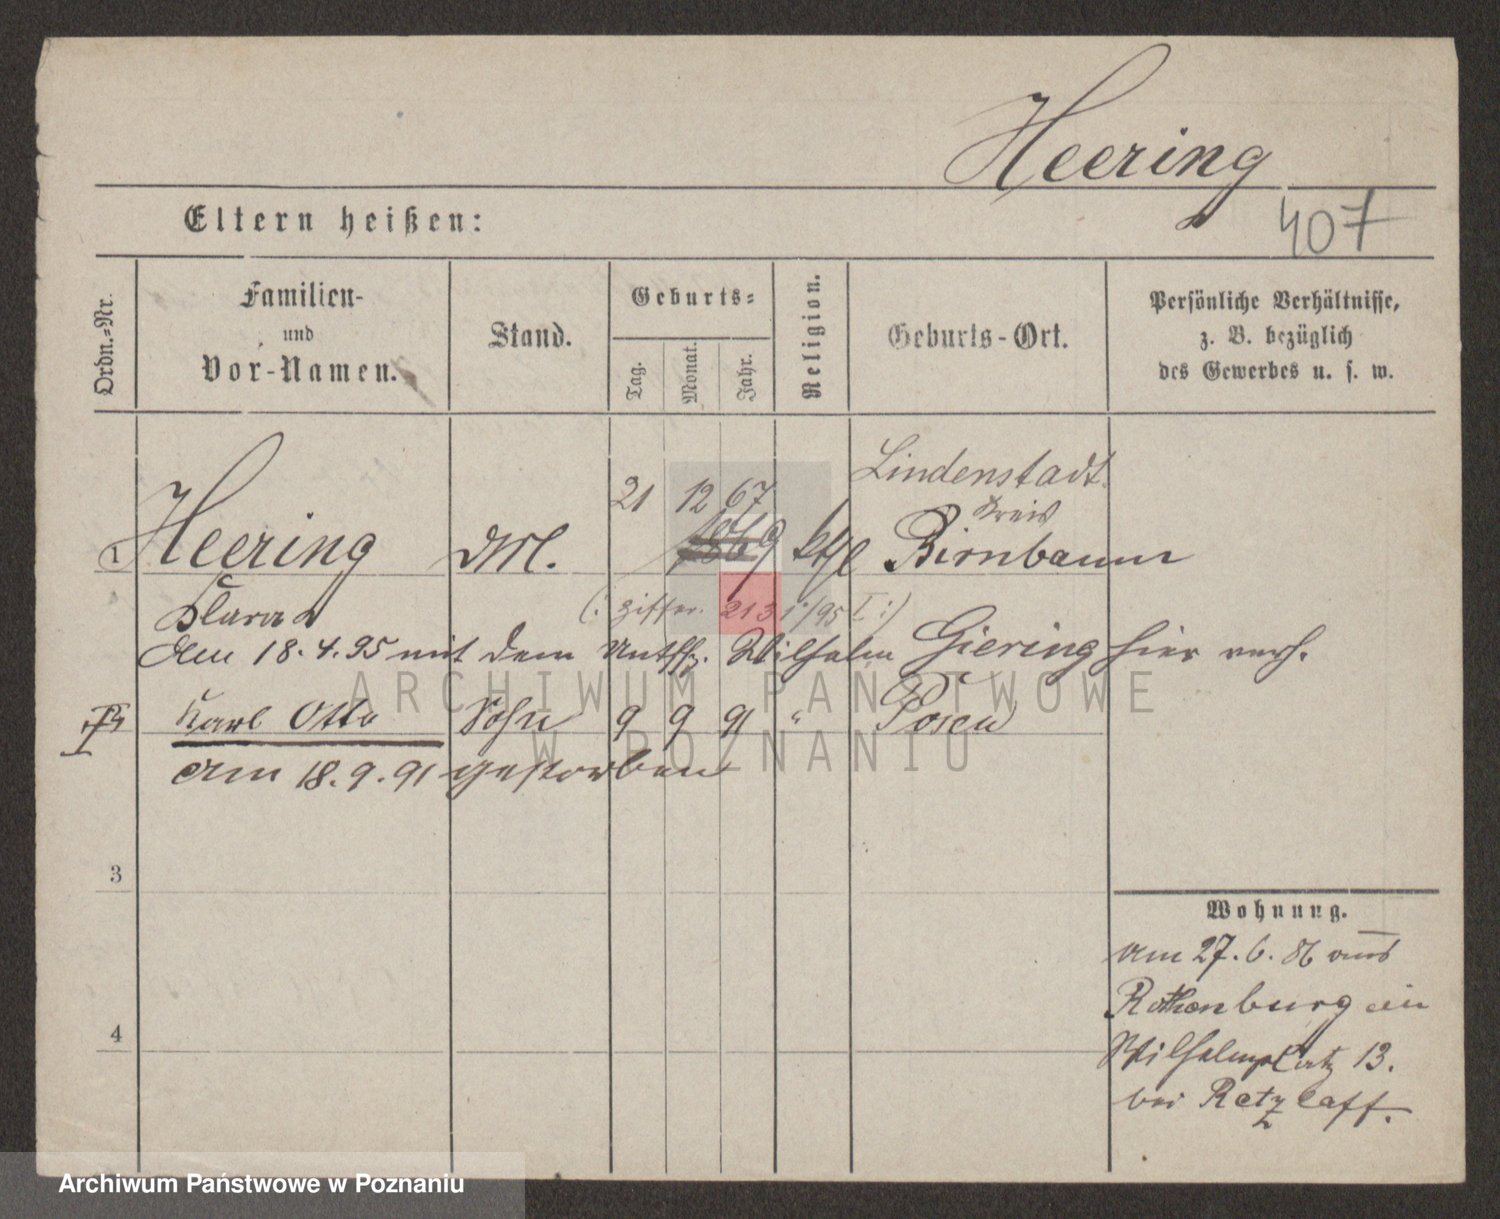 Heering
407
Eltern heißen:
Ordn.-Nr.
Familien-
und
Vor-Namen.
Stand.
Geburts-
Tag.
Monat.
Jahr.
Religion.
Geburts-Ort.
Persönliche Verhältnisse,
z. B. bezüglich
des Gewerbes u. s. w.
21 12 67
Lindenstadt
Kreis
1 Heering 1869 Birnbaum
Klara
(: Ziffer. 213 /95 I :)
den 18.4.95 mit dem Untffz. Wilhelm Giering hier verh.
Karl Otto Sohn 9 9 91 " Posen
am 18.9.91 gestorben
3
4
Wohnung.
am 27.6.86 aus
Rothenburg ein
Wilhelmplatz 13.
bei Retzlaff.
ARCHIWUM PAŃSTWOWE
W POZNANIU
Archiwum Państwowe w Poznaniu